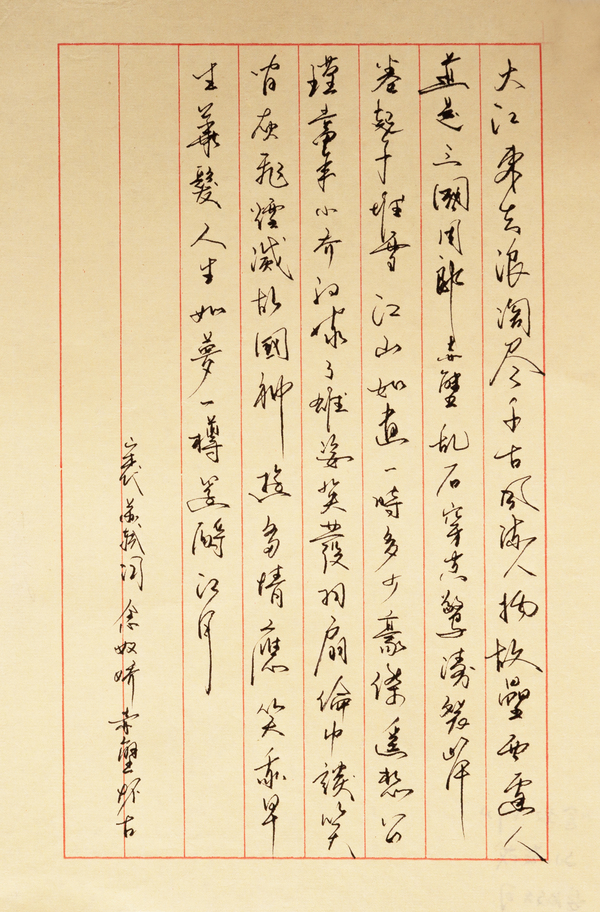 大江東去浪淘尽千古風流人物故壘西邊人
道是三國周郎赤壁乱石穿空驚濤裂岸
卷起千堆雪江山如畫一時多少豪傑遙想公
瑾當年小喬初嫁了雄姿英發羽扇綸巾談笑
間灰飛煙滅故國神遊多情應笑我早
生華髮人生如夢一樽還酹江月
宋代蘇軾詞念奴嬌赤壁怀古